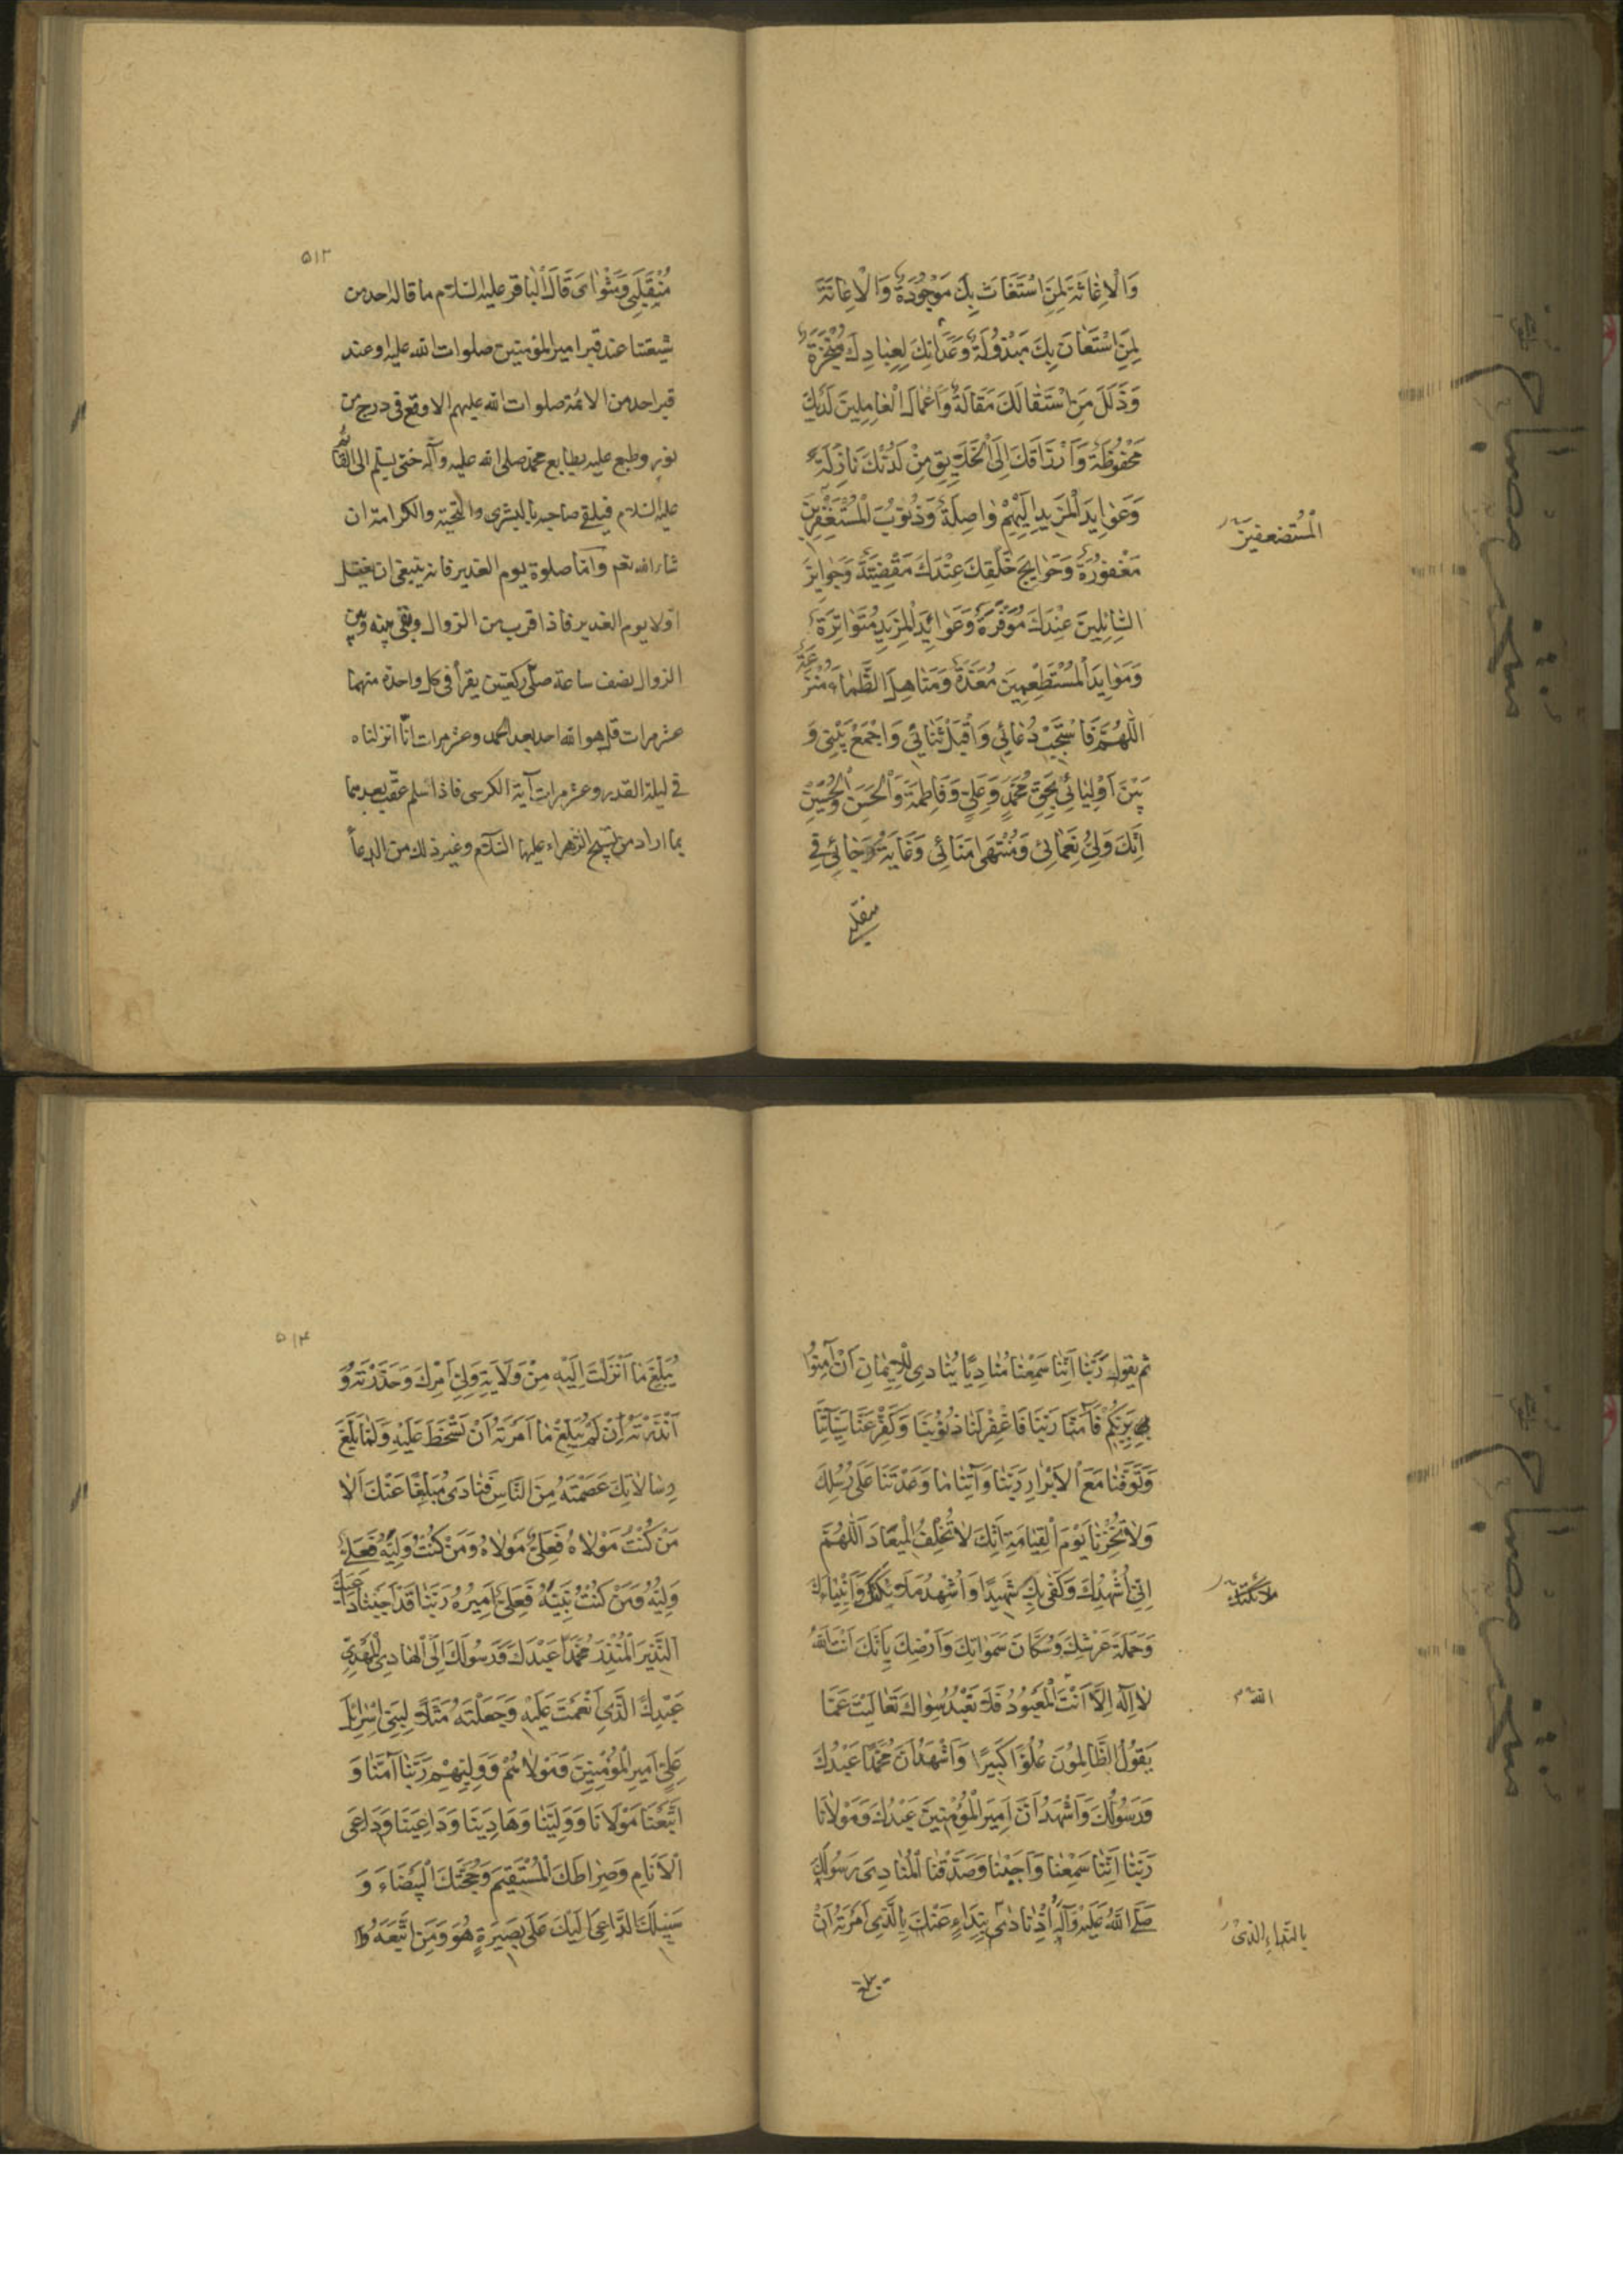 وَالْاِغاثَةَ لِمَنِ اسْتَغاثَ بِكَ مَوْجُودَةٌ وَالْاِعانَةَ
لِمَنِ اسْتَعانَ بِكَ مَبْذُولَةٌ وَعِدَاتِكَ لِعِبادِكَ مُنْجَزَةٌ
وَزَلَلَ مَنِ اسْتَقالَكَ مَقالَةٌ وَاَعْمالَ الْعامِلينَ لَدَيْكَ
مَحْفُوظَةٌ وَاَرْزاقَكَ اِلَى الْخَلايِقِ مِنْ لَدُنْكَ نازِلَةٌ
وَعَوايِدَ الْمَزيدِ اِلَيْهِمْ واصِلَةٌ وَذُنُوبَ الْمُسْتَغْفِرينَ
الْمُسْتَضعفينَ
مَغْفُورَةٌ وَحَوايِجَ خَلْقِكَ عِنْدَكَ مَقْضِيَّةٌ وَجَوايِزَ
السّائِلينَ عِنْدَكَ مُوَفَّرَةٌ وَعَوائِدَ الْمَزيدِ مُتَواتِرَةٌ
وَمَوايِدَ الْمُسْتَطْعِمينَ مُعَدَّةٌ وَمَناهِلَ الظِّماءِ مُتْرَعَةٌ
اَللّهُمَّ فَاسْتَجِبْ دُعائي وَاقْبَلْ ثَنائي وَاجْمَعْ بَيْني وَ
بَيْنَ اَوْلِيائي بِحَقِّ مُحَمَّدٍ وَعَلِيٍّ وَفاطِمَةَ وَالْحَسَنِ وَالْحُسَيْنِ
اِنَّكَ وَلِيُّ نَعْمائي وَمُنْتَهى مَنائي وَغايَةُ رَجائي في
منقلبي
٥١٣
مُنْقَلَبي وَمَثْوايَ قَالَ الْباقر عليه السّلام ما قاله احد من
شيعتنا عند قبر امير المؤمنين صلوات الله عليه او عند
قبر احد من الائمة صلوات الله عليهم الا وقع في درج من
نور وطبع عليه بطابع محمد صلى الله عليه وآله حتى يسلم الى القائم
عليه السّلام فيلقى صاحبه بالبشرى والتحية والكرامة ان
شاء الله تعم وامّا صلوة يوم الغدير فانه ينبغي ان يغتسل
اولا يوم الغدير فاذا قرب من الزوال وبقي بينه وبين
الزوال نصف ساعة صلّى ركعتين يقرأ في كل واحدة منهما
عشر مرات قل هو الله احد بعد الحمد وعشر مرات انّا انزلناه
في ليلة القدر وعشر مرات آية الكرسي فاذا سلم عقّب بعدهما
بما اراد من تسبيح الزهراء عليها السّلام وغير ذلك من الدعاء
ثم يقول رَبَّنا اِنَّنا سَمِعْنا مُنادِيًا يُنادي لِلْاِيمانِ اَنْ آمِنُوا
بِرَبِّكُمْ فَآمَنّا رَبَّنا فَاغْفِرْ لَنا ذُنُوبَنا وَكَفِّرْ عَنّا سَيِّئاتِنا
وَتَوَفَّنا مَعَ الْاَبْرارِ رَبَّنا وَآتِنا ما وَعَدْتَنا عَلى رُسُلِكَ
وَلا تُخْزِنا يَوْمَ الْقِيامَةِ اِنَّكَ لا تُخْلِفُ الْميعادَ اَللّهُمَّ
اِنّي اُشْهِدُكَ وَكَفى بِكَ شَهيدًا وَاُشْهِدُ مَلائِكَتَكَ وَاَنْبِياءَكَ
ملائكتك
وَحَمَلَةَ عَرْشِكَ وَسُكّانَ سَمواتِكَ وَاَرْضِكَ بِاَنَّكَ اَنْتَ اللهُ
لا اِلهَ اِلّا اَنْتَ الْمَعْبُودُ فَلا نَعْبُدُ سِواكَ تَعالَيْتَ عَمّا
الله م
يَقُولُ الظّالِمُونَ عُلُوًّا كَبيرًا وَاَشْهَدُ اَنَّ مُحَمَّدًا عَبْدُكَ
وَرَسُولُكَ وَاَشْهَدُ اَنَّ اَميرَ الْمُؤْمِنينَ عَبْدُكَ وَمَوْلانا
رَبَّنا اِنَّنا سَمِعْنا وَاَجَبْنا وَصَدَّقْنا الْمُنادِيَ رَسُولَكَ
صَلَّى اللهُ عَلَيْهِ وَآلِهِ اِذْ نادى بِنِداءٍ عَنْكَ بِالَّذي اَمَرْتَهُ اَنْ
بالنّداءِ الّذي
يبلغ
٥١٤
يُبَلِّغَ ما اَنْزَلْتَ اِلَيْهِ مِنْ وَلايَةِ وَلِيِّ اَمْرِكَ وَحَذَّرْتَهُ وَ
اَنْذَرْتَهُ اِنْ لَمْ يُبَلِّغْ ما اَمَرْتَهُ اَنْ تَسْخَطَ عَلَيْهِ وَلَمّا بَلَّغَ
رِسالاتِكَ عَصَمْتَهُ مِنَ النّاسِ فَنادى مُبَلِّغًا عَنْكَ اَلا
مَنْ كُنْتُ مَوْلاهُ فَعَلِيٌّ مَوْلاهُ وَمَنْ كُنْتُ وَلِيَّهُ فَعَلِيٌّ
وَلِيُّهُ وَمَنْ كُنْتُ نَبِيَّهُ فَعَلِيٌّ اَميرُهُ رَبَّنا قَدْ اَجَبْنا داعِيَكَ
النَّذيرَ الْمُنْذِرَ مُحَمَّدًا عَبْدَكَ وَرَسُولَكَ اِلَى الْهادِي الْمَهْدِيِّ
عَبْدِكَ الَّذي اَنْعَمْتَ عَلَيْهِ وَجَعَلْتَهُ مَثَلًا لِبَني اِسْرائيلَ
عَلِيٍّ اَميرِ الْمُؤْمِنينَ وَمَوْلاهُمْ وَوَلِيِّهِمْ رَبَّنا آمَنّا وَ
اتَّبَعْنا مَوْلانا وَوَلِيَّنا وَهادِيَنا وَداعِيَنا وَداعِيَ
الْاَنامِ وَصِراطَكَ الْمُسْتَقيمَ وَحُجَّتَكَ الْبَيْضاءَ وَ
سَبيلَكَ الدّاعِيَ اِلَيْكَ عَلى بَصيرَةٍ هُوَ وَمَنِ اتَّبَعَهُ وَ